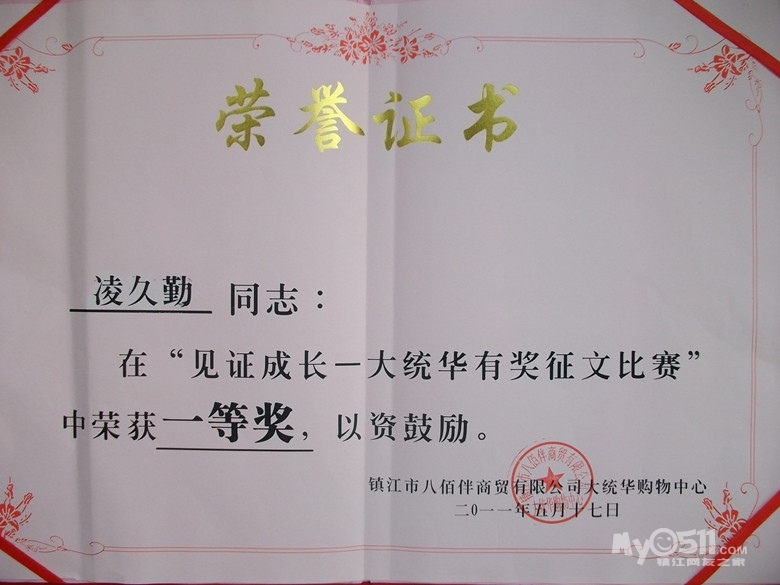 荣誉证书
凌久勤 同志：
在“见证成长—大统华有奖征文比赛”
中荣获一等奖，以资鼓励。
镇江市八佰伴商贸有限公司大统华购物中心
二0一一年五月十七日
My0511
镇江网友之家